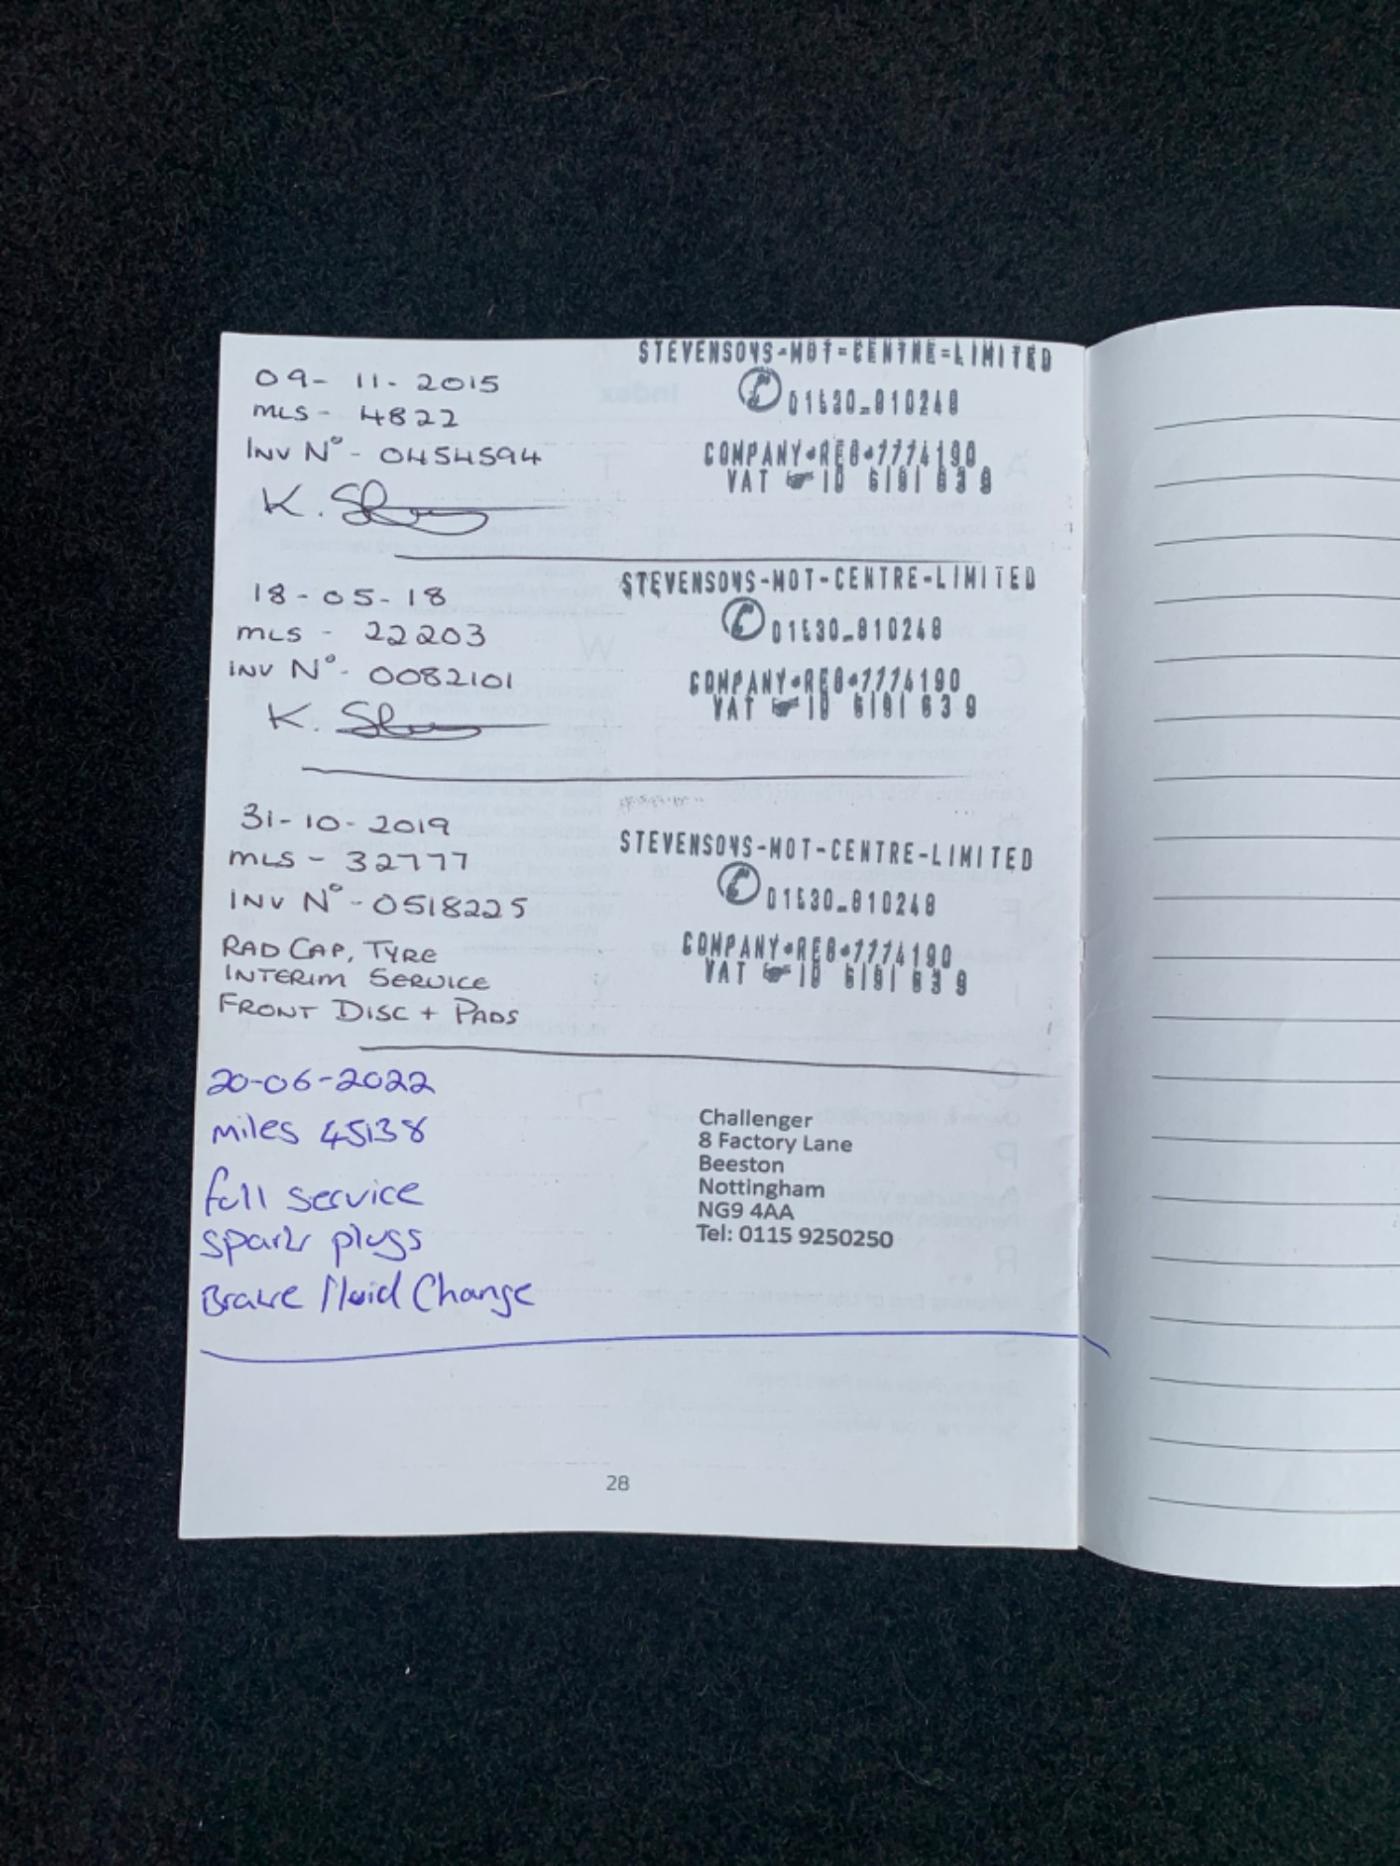 09-11-2015
MLS - 4822
INV Nº - 0454594
K.
STEVENSONS-MOT-CENTRE-LIMITED
01530-810248
COMPANY•REG•7774190
VAT ☛ ID 6191 639
18-05-18
MLS - 22203
INV Nº - 0082101
K.
STEVENSONS-MOT-CENTRE-LIMITED
01530-810248
COMPANY•REG•7774190
VAT ☛ ID 6191 639
31-10-2019
MLS - 32777
INV Nº - 0518225
RAD CAP, TYRE
INTERIM SERVICE
FRONT DISC + PADS
STEVENSONS-MOT-CENTRE-LIMITED
01530-810248
COMPANY•REG•7774190
VAT ☛ ID 6191 639
20-06-2022
miles 45138
full service
spark plugs
Brake fluid Change
Challenger
8 Factory Lane
Beeston
Nottingham
NG9 4AA
Tel: 0115 9250250
28